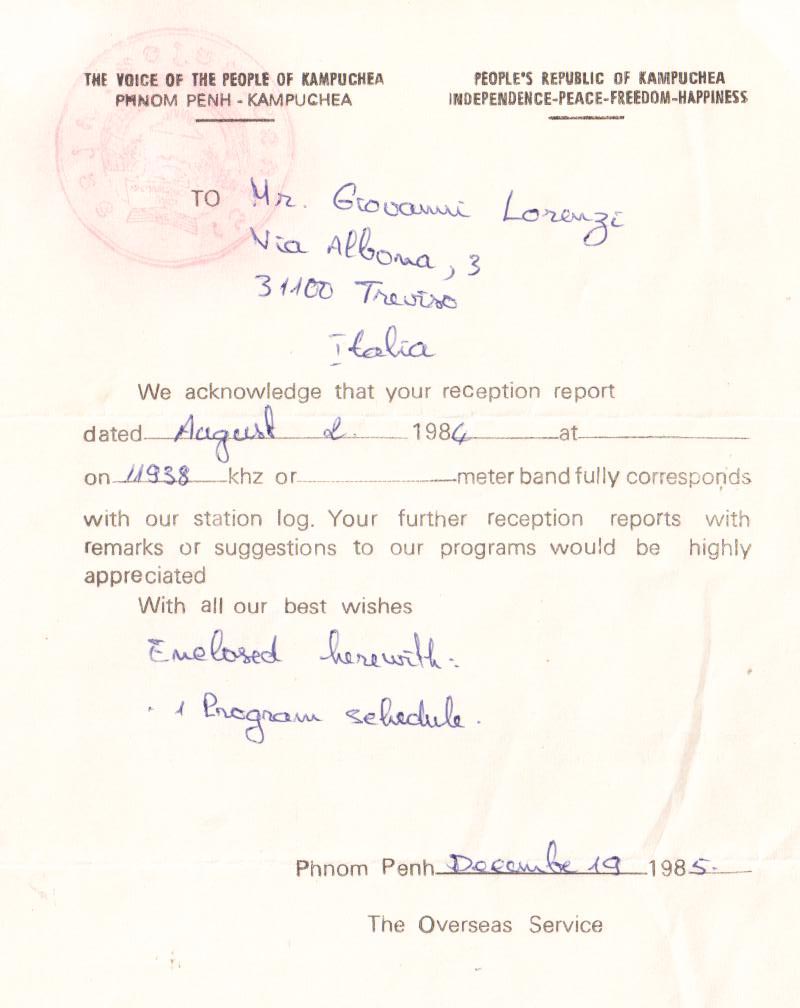 THE VOICE OF THE PEOPLE OF KAMPUCHEA
PHNOM PENH - KAMPUCHEA
PEOPLE'S REPUBLIC OF KAMPUCHEA
INDEPENDENCE-PEACE-FREEDOM-HAPPINESS
TO Mr. Giovanni Lorenzi
Via Albona, 3
31100 Treviso
Italia
We acknowledge that your reception report
dated August 2 1984 at
on 11938 khz or meter band fully corresponds
with our station log. Your further reception reports with
remarks or suggestions to our programs would be highly
appreciated
With all our best wishes
Enclosed herewith:
. 1 Program schedule.
Phnom Penh Decembe 19 1985.
The Overseas Service